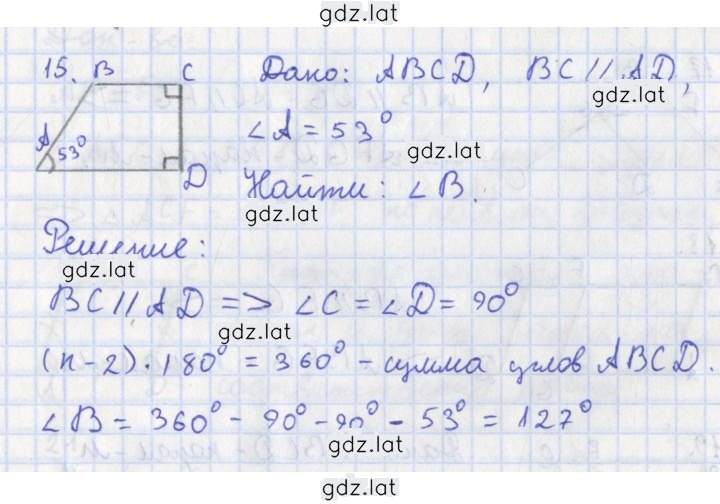 gdz.lat
15. B C Дано: ABCD, BC // AD,
gdz.lat
A 53° ∠A = 53°
gdz.lat
D Найти: ∠B.
gdz.lat
Решение:
gdz.lat
BC // AD => ∠C = ∠D = 90°
gdz.lat
(n-2)·180° = 360° - сумма углов ABCD.
∠B = 360° - 90° - 90° - 53° = 127°
gdz.lat
gdz.lat